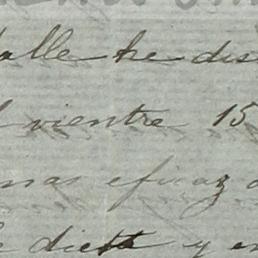 alle he dis
vientre 15
mas eficaz
dieta y en